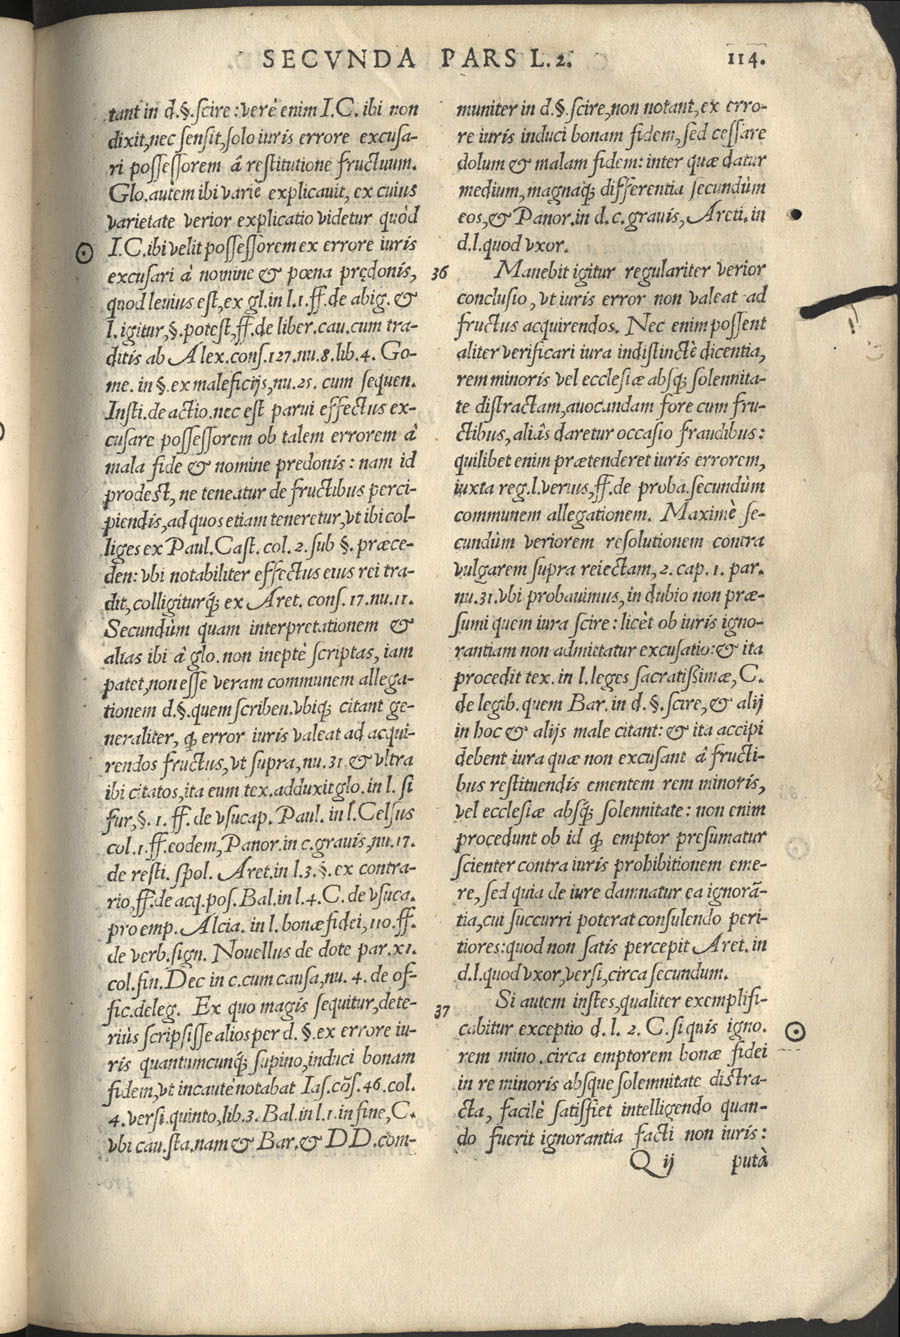 SECVNDA PARS L.2. 114.
tant in d.§.scire: verè enim I.C. ibi non
dixit, nec sensit, solo iuris errore excusa-
ri possessorem à restitutione fructuum.
Glo. autem ibi varie explicauit, ex cuius
varietate verior explicatio videtur quòd
I.C. ibi velit possessorem ex errore iuris
excusari à nomine & pœna prędonis,
quod leuius est, ex gl. in l.1.ff. de abig. &
l. igitur,§. potest, ff. de liber. cau. cum tra-
ditis ab Alex. cons. 127. nu. 8. lib. 4. Go-
me. in §. ex maleficijs, nu. 25. cum sequen.
Insti. de actio. nec est parui effectus ex-
cusare possessorem ob talem errorem à
mala fide & nomine predonis: nam id
prodest, ne teneatur de fructibus perci-
piendis, ad quos etiam teneretur, vt ibi col-
liges ex Paul. Cast. col. 2. sub §. præce-
den: vbi notabiliter effectus eius rei tra-
dit, colligiturq́; ex Aret. cons. 17. nu. 11.
Secundùm quam interpretationem &
alias ibi à glo. non inepte scriptas, iam
patet, non esse veram communem allega-
tionem d.§. quem scriben. vbiq; citant ge-
neraliter, q; error iuris valeat ad acqui-
rendos fructus, vt supra, nu. 31. & vltra
ibi citatos, ita eum tex. adduxit glo. in l. si
fur, §. 1. ff. de vsucap. Paul. in l. Celsus
col. 1. ff. eodem, Panor. in c. grauis, nu. 17.
de resti. spol. Aret. in l. 3. §. ex contra-
rio, ff. de acq. pos. Bal. in l. 4. C. de vsuca.
pro emp. Alcia. in l. bonæ fidei, 110. ff.
de verb. sign. Nouellus de dote par. xi.
col. fin. Dec in c. cum causa, nu. 4. de of-
fic. deleg. Ex quo magis sequitur, dete-
riùs scripsisse alios per d. §. ex errore iu-
ris quantumcunq́; supino, induci bonam
fidem, vt incautè notabat Ias. cõs. 46. col.
4. versi. quinto, lib. 3. Bal. in l. 1. in fine, C.
vbi cau. sta. nam & Bar. & DD. com-
muniter in d.§. scire, non notant, ex erro-
re iuris induci bonam fidem, sed cessare
dolum & malam fidem: inter quæ datur
medium, magnaq́; differentia secundùm
eos, & Panor. in d. c. grauis, Areti. in
d. l. quod vxor.
36 Manebit igitur regulariter verior
conclusio, vt iuris error non valeat ad
fructus acquirendos. Nec enim possent
aliter verificari iura indistinctè dicentia,
rem minoris vel ecclesiæ absq́; solennita-
te distractam, auocandam fore cum fru-
ctibus, aliâs daretur occasio fraudibus:
quilibet enim prætenderet iuris errorem,
iuxta reg. l. verius, ff. de proba. secundùm
communem allegationem. Maximè se-
cundùm veriorem resolutionem contra
vulgarem supra reiectam, 2. cap. 1. par.
nu. 31. vbi probauimus, in dubio non præ-
sumi quem iura scire: licèt ob iuris igno-
rantiam non admittatur excusatio: & ita
procedit tex. in l. leges sacratissimæ, C.
de legib. quem Bar. in d. §. scire, & alij
in hoc & alijs male citant: & ita accipi
debent iura quæ non excusant à fructi-
bus restituendis ementem rem minoris,
vel ecclesiæ absq́; solennitate: non enim
procedunt ob id q; emptor presumatur
scienter contra iuris prohibitionem eme-
re, sed quia de iure damnatur ea ignorã-
tia, cui succurri poterat consulendo peri-
tiores: quod non satis percepit Aret. in
d. l. quod vxor, versi, circa secundum.
37 Si autem instes, qualiter exemplifi-
cabitur exceptio d. l. 2. C. si quis igno.
rem mino. circa emptorem bonæ fidei
in re minoris absque solemnitate distra-
cta, facilè satisfiet intelligendo quan-
do fuerit ignorantia facti non iuris:
Q ij putà